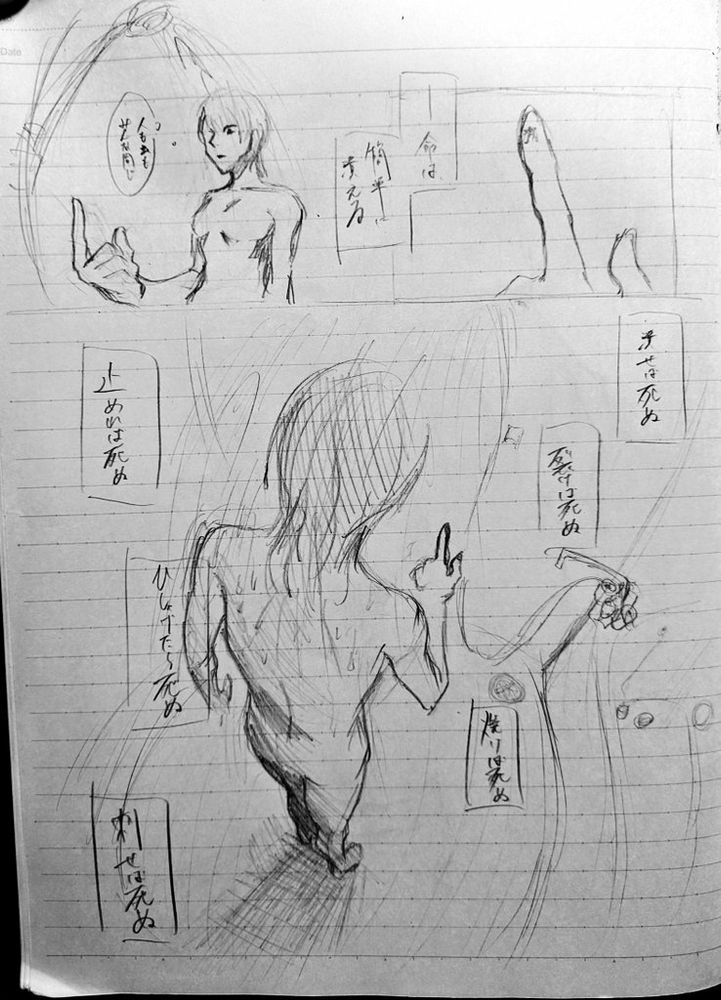 Date
命は
簡単に
消える
人も虫も
みんな同じ
潰せば死ぬ
裂けば死ぬ
焼けば死ぬ
止めれば死ぬ
ひしゃげたら死ぬ
刺せば死ぬ